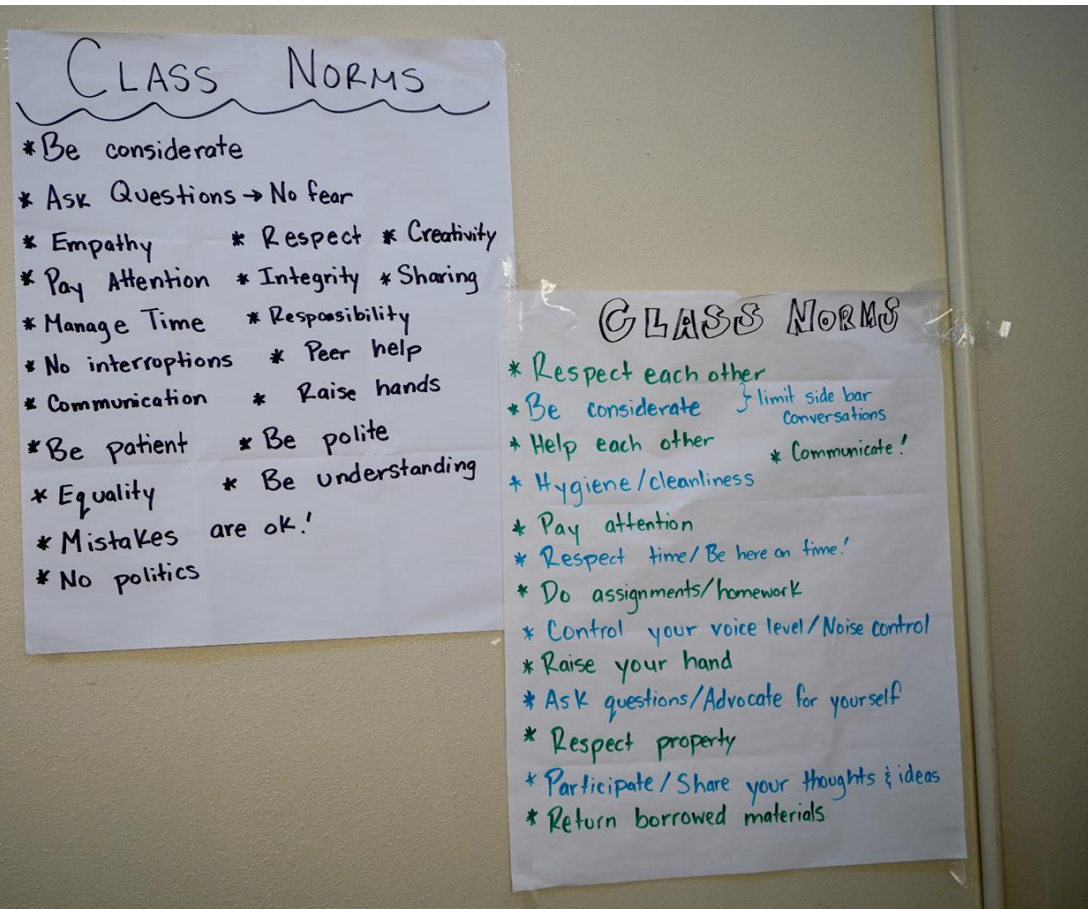 CLASS NORMS
* Be considerate
* Ask Questions → No fear
* Empathy * Respect * Creativity
* Pay Attention * Integrity * Sharing
* Manage Time * Responsibility
* No interroptions * Peer help
* Communication * Raise hands
* Be patient * Be polite
* Equality * Be understanding
* Mistakes are ok!
* No politics
CLASS NORMS
* Respect each other
* Be considerate } limit side bar
conversations
* Help each other * Communicate!
* Hygiene/cleanliness
* Pay attention
* Respect time/Be here on time!
* Do assignments/homework
* Control your voice level/Noise control
* Raise your hand
* Ask questions/Advocate for yourself
* Respect property
* Participate/Share your thoughts & ideas
* Return borrowed materials